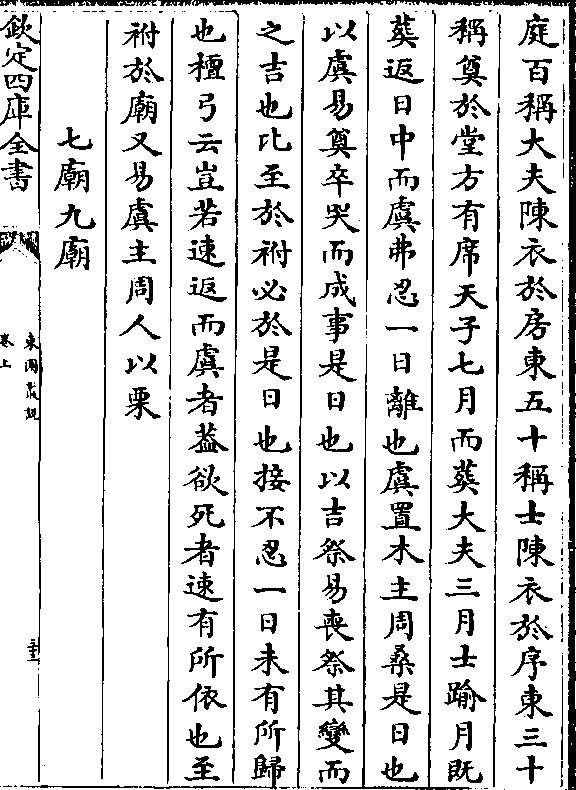 庭百稱大夫陳衣於房東五十稱士陳衣於序東三十
稱奠於堂方有席天子七月而葬大夫三月士踰月既
葬返日中而虞弗忍一日離也虞置木主周桑是日也
以虞易奠卒哭而成事是日也以吉祭易喪祭其變而
之吉也比至於祔必於是日也接不忍一日未有所歸
也檀弓云豈若速返而虞者葢欲死者速有所依也至
祔於廟又易虞主周人以栗
七廟九廟
欽定四庫全書
卷上